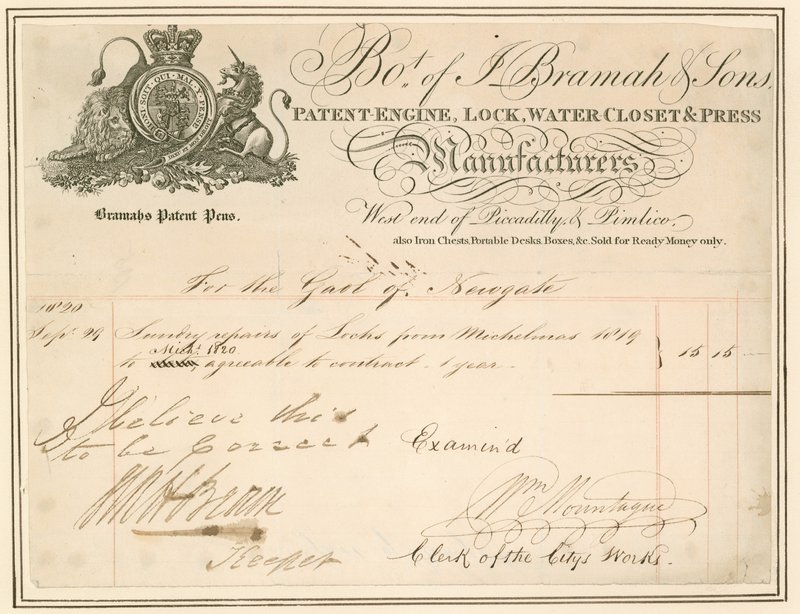 HONI SOIT QUI MAL Y PENSE
DIEU ET MON DROIT
Bramahs Patent Pens.
Bot. of J Bramah & Sons,
PATENT-ENGINE, LOCK, WATER-CLOSET & PRESS
Manufacturers
West end of Piccadilly, & Pimlico,
also Iron Chests, Portable Desks, Boxes, &c. Sold for Ready Money only.
For the Gaol of Newgate
1820
Sepr 29 Sundry repairs of Locks from Michelmas 1819
Michs. 1820
to agreeable to contract - 1 year - 15 15 -
I believe this
to be Correct
Examin'd
Brown
Wm Mountague
Keeper
Clerk of the Citys Works.